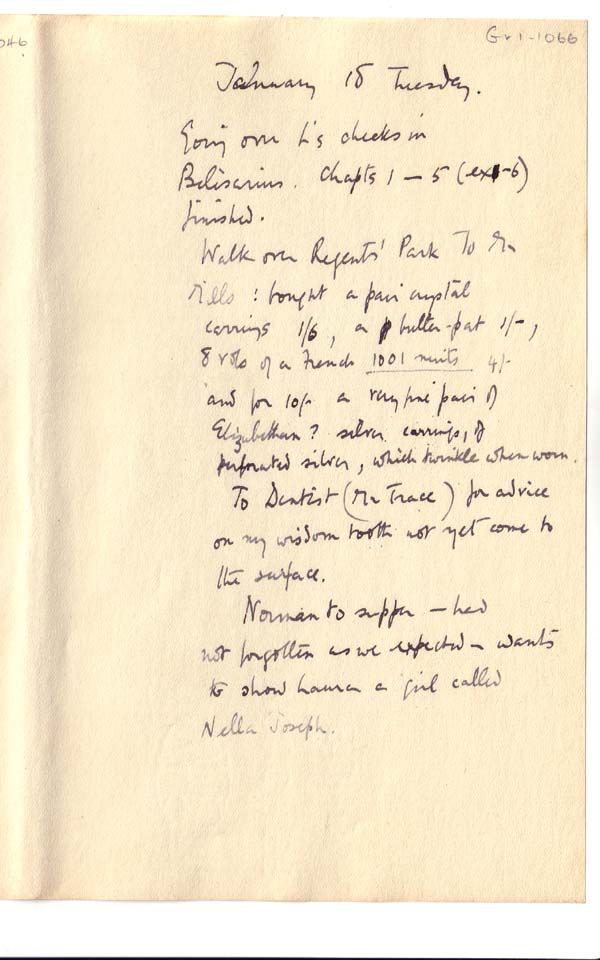 046
Gv1-1066
January 18 Tuesday.
Going over L's checks in
Belisarius. Chapts 1 — 5 (ex 1-6)
finished.
Walk over Regents' Park to Mr
Mills : bought a pair crystal
earrings 1/6, a butter-pat 1/-,
8 vols of a French 1001 nuits 4/-
and for 10/- a very fine pair of
Elizabethan? silver earrings, of
perforated silver, which twinkle when worn.
To Dentist (Mr Trace) for advice
on my wisdom tooth not yet come to
the surface.
Norman to supper — had
not forgotten as we expected — wants
to show Laura a girl called
Nella Joseph.